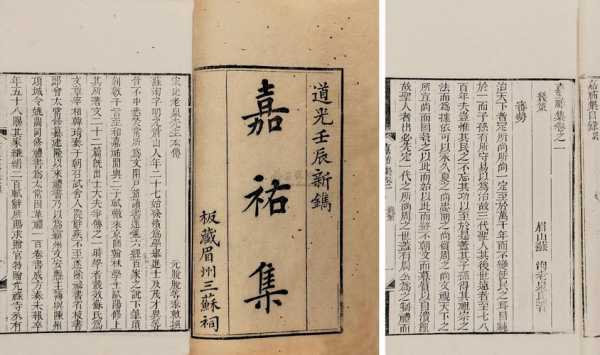 嘉祐集目錄
嘉祐集卷之一
眉山蘇洵老泉氏著
幾策
審勢
治天下者定所尚所尚一定至於萬千年而不變使民之耳目純
於一而子孫有所守易以爲治故三代聖人其後世遠者至七八
百年夫豈惟其民之不忘其功以至於是蓋其子孫得其祖宗之
法而爲依據可以永久夏之尚忠商之尚質周之尚文視天下之
所宜尚而固執之以此而始以此而終不朝文而暮質以自潰亂
故聖人者出必先定一代之所尚周之世蓋有周公爲之制禮而
道光壬辰新鐫
嘉祐集
板藏眉州三蘇祠
宋史老泉先生本傳
元脫脫等奉敕撰
蘇洵字明允眉州眉山人年二十七始發憤爲學歲餘舉進士及茂才異等
皆不中悉焚常所爲文閉戶益讀書遂通六經百家之說下筆頃
刻數千言至和嘉祐間與二子軾轍來京師翰林學士歐陽修上
其所著文二十二篇旣出士大夫爭傳之一時學者競效蘇氏爲
文章宰相韓琦奏于朝召試舍人院辭疾不至遂除祕書省校書
郎會太常修纂建隆以來禮書乃以爲霸州文安縣主簿與陳州
項城令姚闢同修禮書爲太常因革禮一百卷書成方奏未報卒
年五十八賜其家縑銀二百軾辭所賜求贈官特贈光祿寺丞有